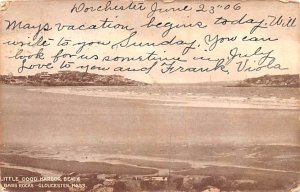 Dorchester June 23" 06
Mays vacation begins today. Will
write to you Sunday. Can you
look for us sometime in July
Love to you and Frank, Viola
LITTLE GOOD HARBOR BEACH
BASS ROCKS - GLOUCESTER, MASS.